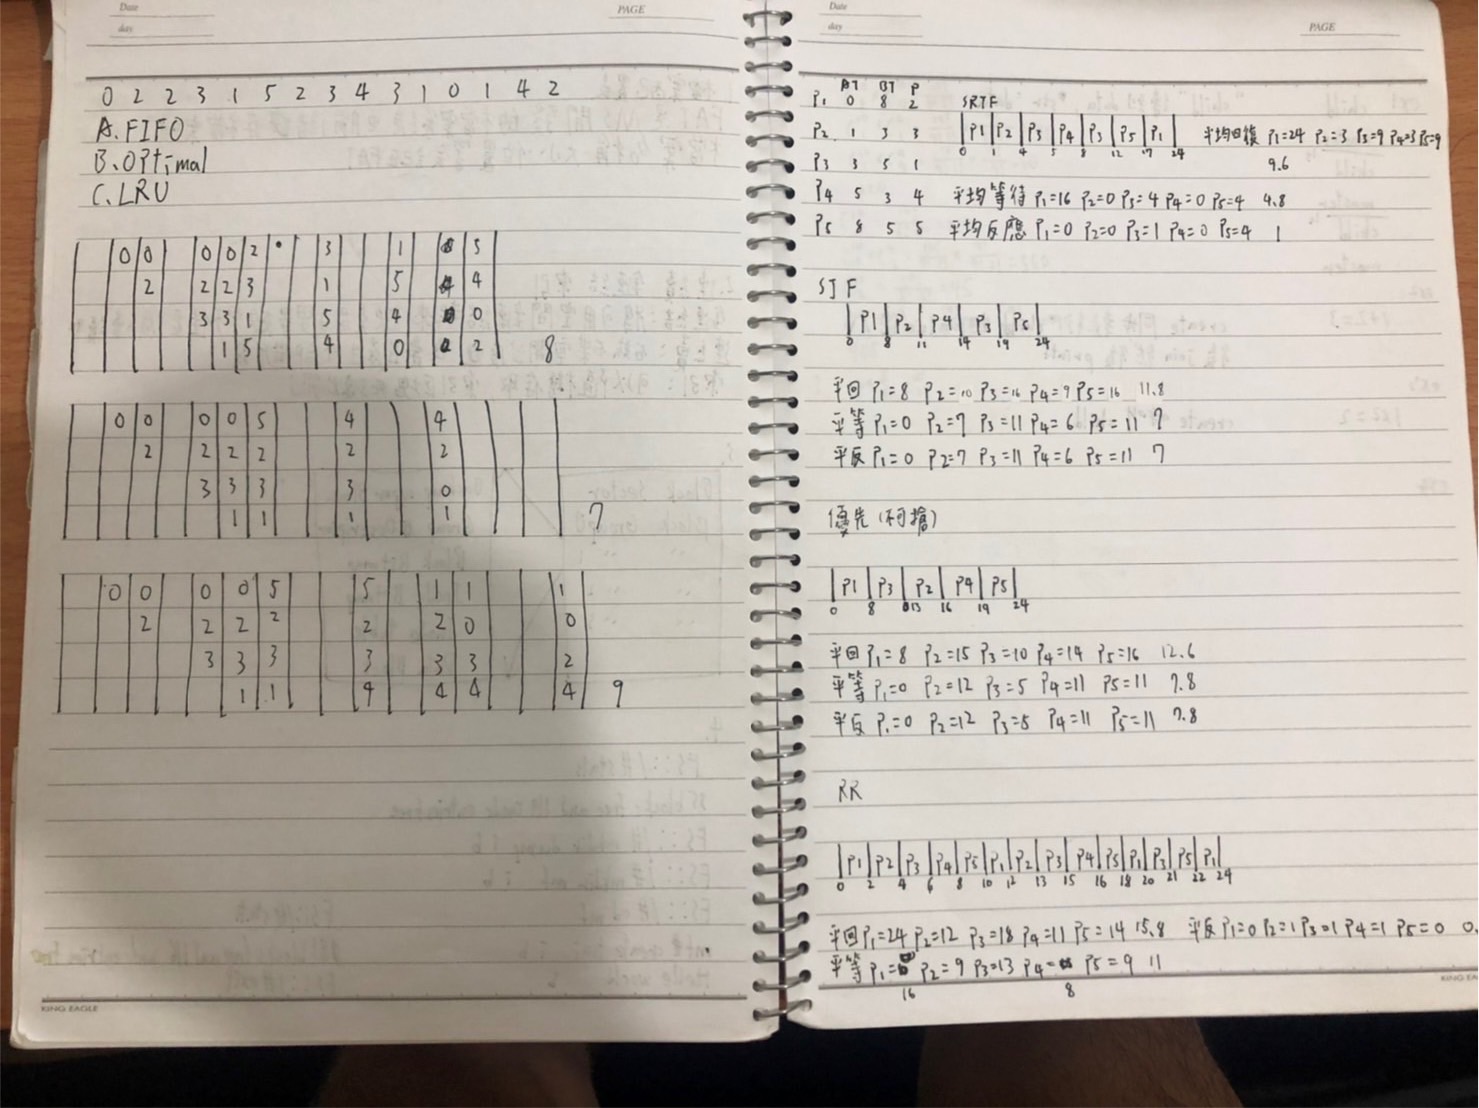 Date
day
PAGE
0 2 2 3 1 5 2 3 4 3 1 0 1 4 2
A. FIFO
B. Optimal
C. LRU
0 0 0 0 2 3 1 5
2 2 2 3 1 5 4
3 3 1 5 4 0
1 5 4 0 2 8
0 0 0 0 5 4 4
2 2 2 2 2 2
3 3 3 3 0
1 1 1 1 7
0 0 0 0 5 5 1 1 1
2 2 2 2 2 2 0 0
3 3 3 3 3 3 2
1 1 4 4 4 4 9
KING EAGLE
Date
day
PAGE
AT BT P
P1 0 8 2 SRTF
P2 1 3 3 P1 P2 P3 P4 P3 P5 P1 平均回復 P1=24 P2=3 P3=9 P4=3 P5=9
0 1 4 5 8 12 17 24
P3 3 5 1 9.6
P4 5 3 4 平均等待 P1=16 P2=0 P3=4 P4=0 P5=4 4.8
P5 8 5 5 平均反應 P1=0 P2=0 P3=1 P4=0 P5=4 1
SJF
P1 P2 P4 P3 P5
0 8 11 14 19 24
平回 P1=8 P2=10 P3=16 P4=9 P5=16 11.8
平等 P1=0 P2=7 P3=11 P4=6 P5=11 7
平反 P1=0 P2=7 P3=11 P4=6 P5=11 7
優先(不可搶)
P1 P3 P2 P4 P5
0 8 13 16 19 24
平回 P1=8 P2=15 P3=10 P4=14 P5=16 12.6
平等 P1=0 P2=12 P3=5 P4=11 P5=11 7.8
平反 P1=0 P2=12 P3=5 P4=11 P5=11 7.8
RR
P1 P2 P3 P4 P5 P1 P2 P3 P4 P5 P1 P3 P5 P1
0 2 4 6 8 10 12 13 15 16 18 20 21 22 24
平回 P1=24 P2=12 P3=18 P4=11 P5=14 15.8 平反 P1=0 P2=1 P3=1 P4=1 P5=0 0.
平等 P1= P2=9 P3=13 P4= P5=9 11
16 8
KING EA